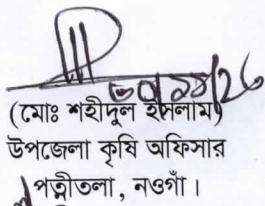 (মোঃ শহীদুল ইসলাম)
উপজেলা কৃষি অফিসার
পত্নীতলা, নওগাঁ।